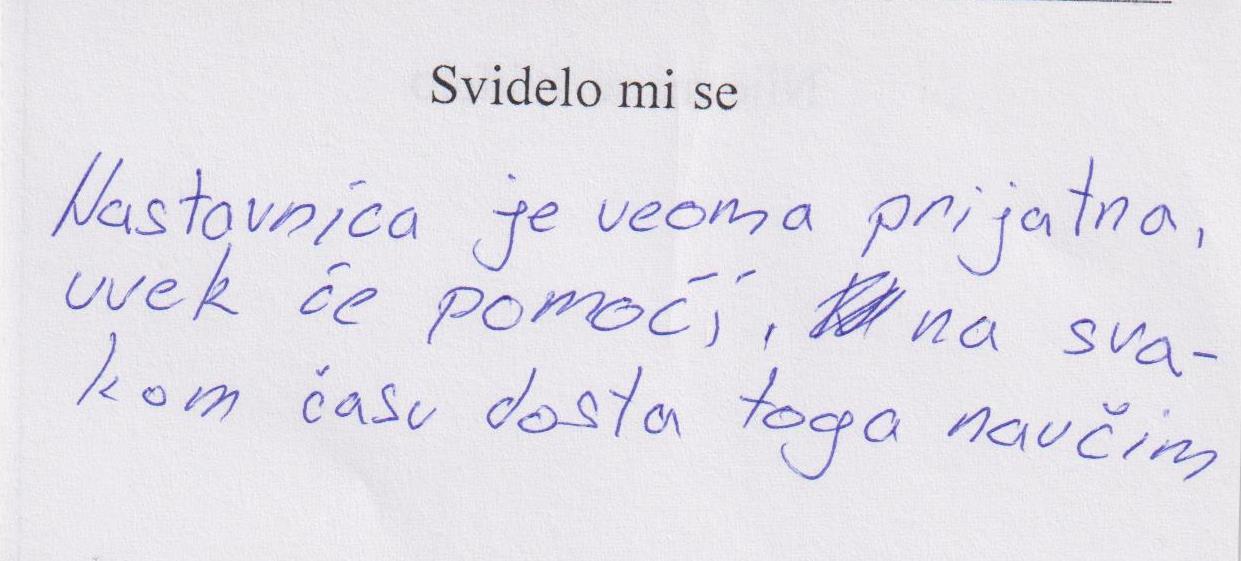 Svidelo mi se
Nastavnica je veoma prijatna,
uvek će pomoći, na sva-
kom času dosta toga naučim